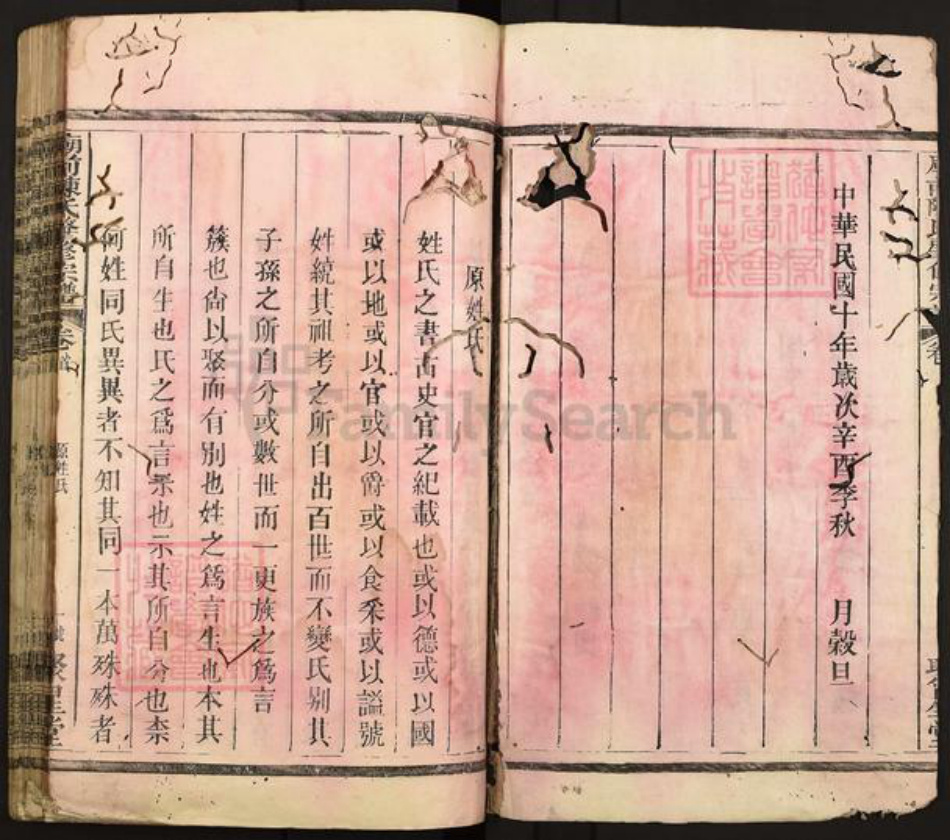 中華民國十年歲次辛酉季秋　月穀旦
原姓氏
姓氏之書古史官之紀載也或以德或以國
或以地或以官或以爵或以食采或以謚號
姓統其祖考之所自出百世而不變氏别其
子孫之所自分或數世而一更族之爲言
簇也尙以聚而有別也姓之爲言生也本其
所自生也氏之爲言示也示其所自分也柰
何姓同氏異異者不知其同一本萬殊殊者
前陳氏修宗譜
卷首
原姓氏
聚星堂
FamilySearch